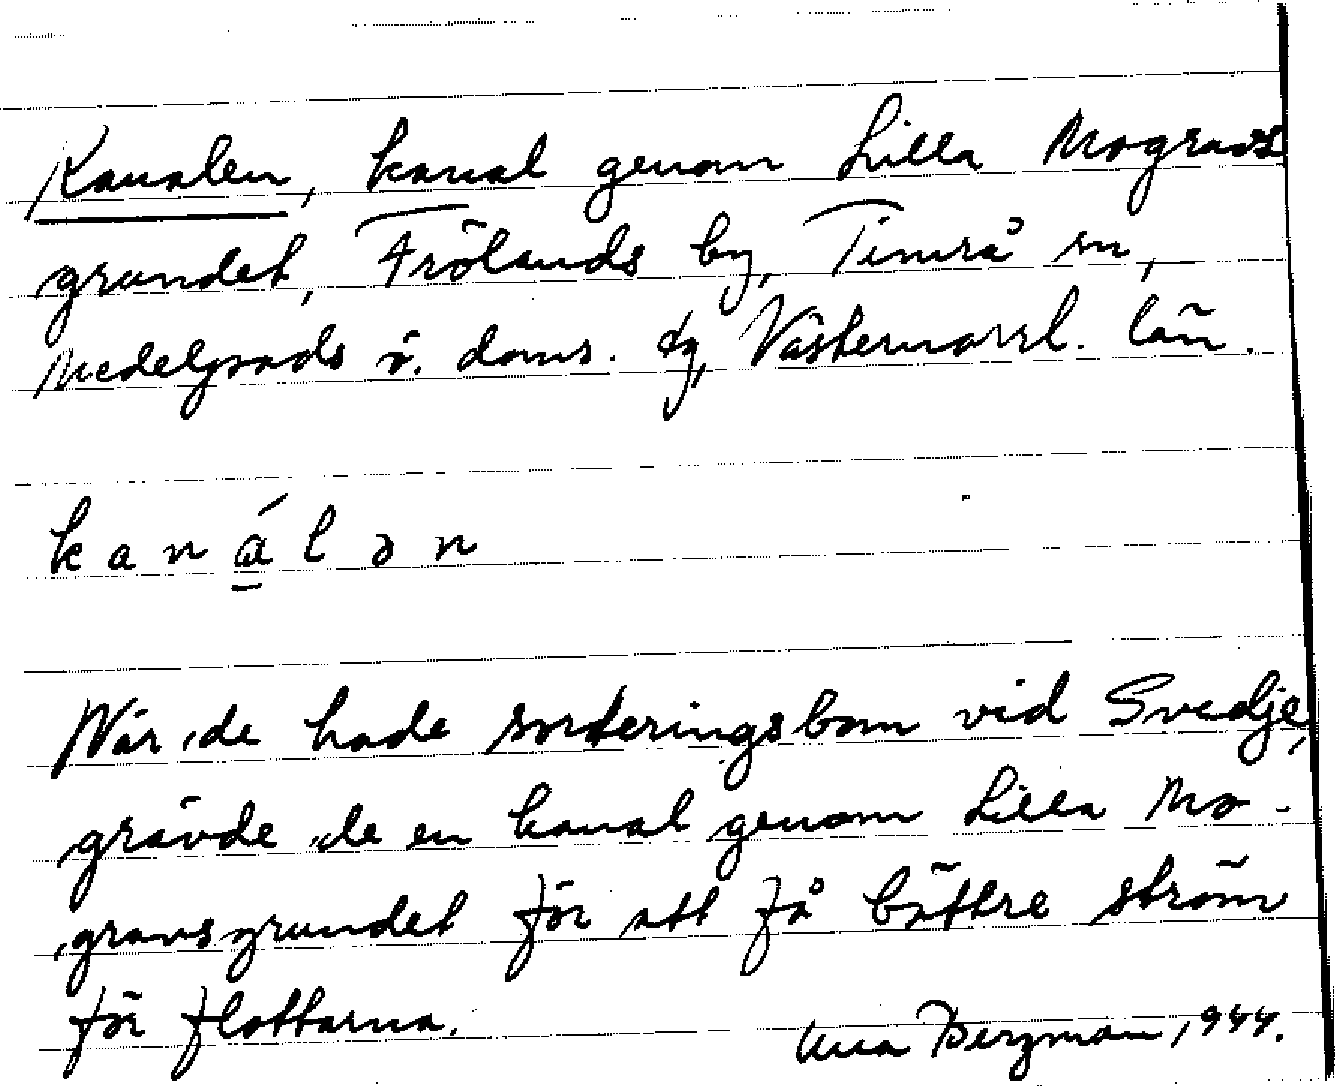 Kanalen, kanal genom Lilla Mogravs
grundet, Frölands by, Timrå sn,
Medelpads ö. doms. dg, Västernorrl. län.
kanálən
När de hade sorteringsbom vid Svedje,
grävde de en kanal genom Lilla Mo-
gravsgrundet för att få bättre ström
för flottarna.
Bergman, 1944.